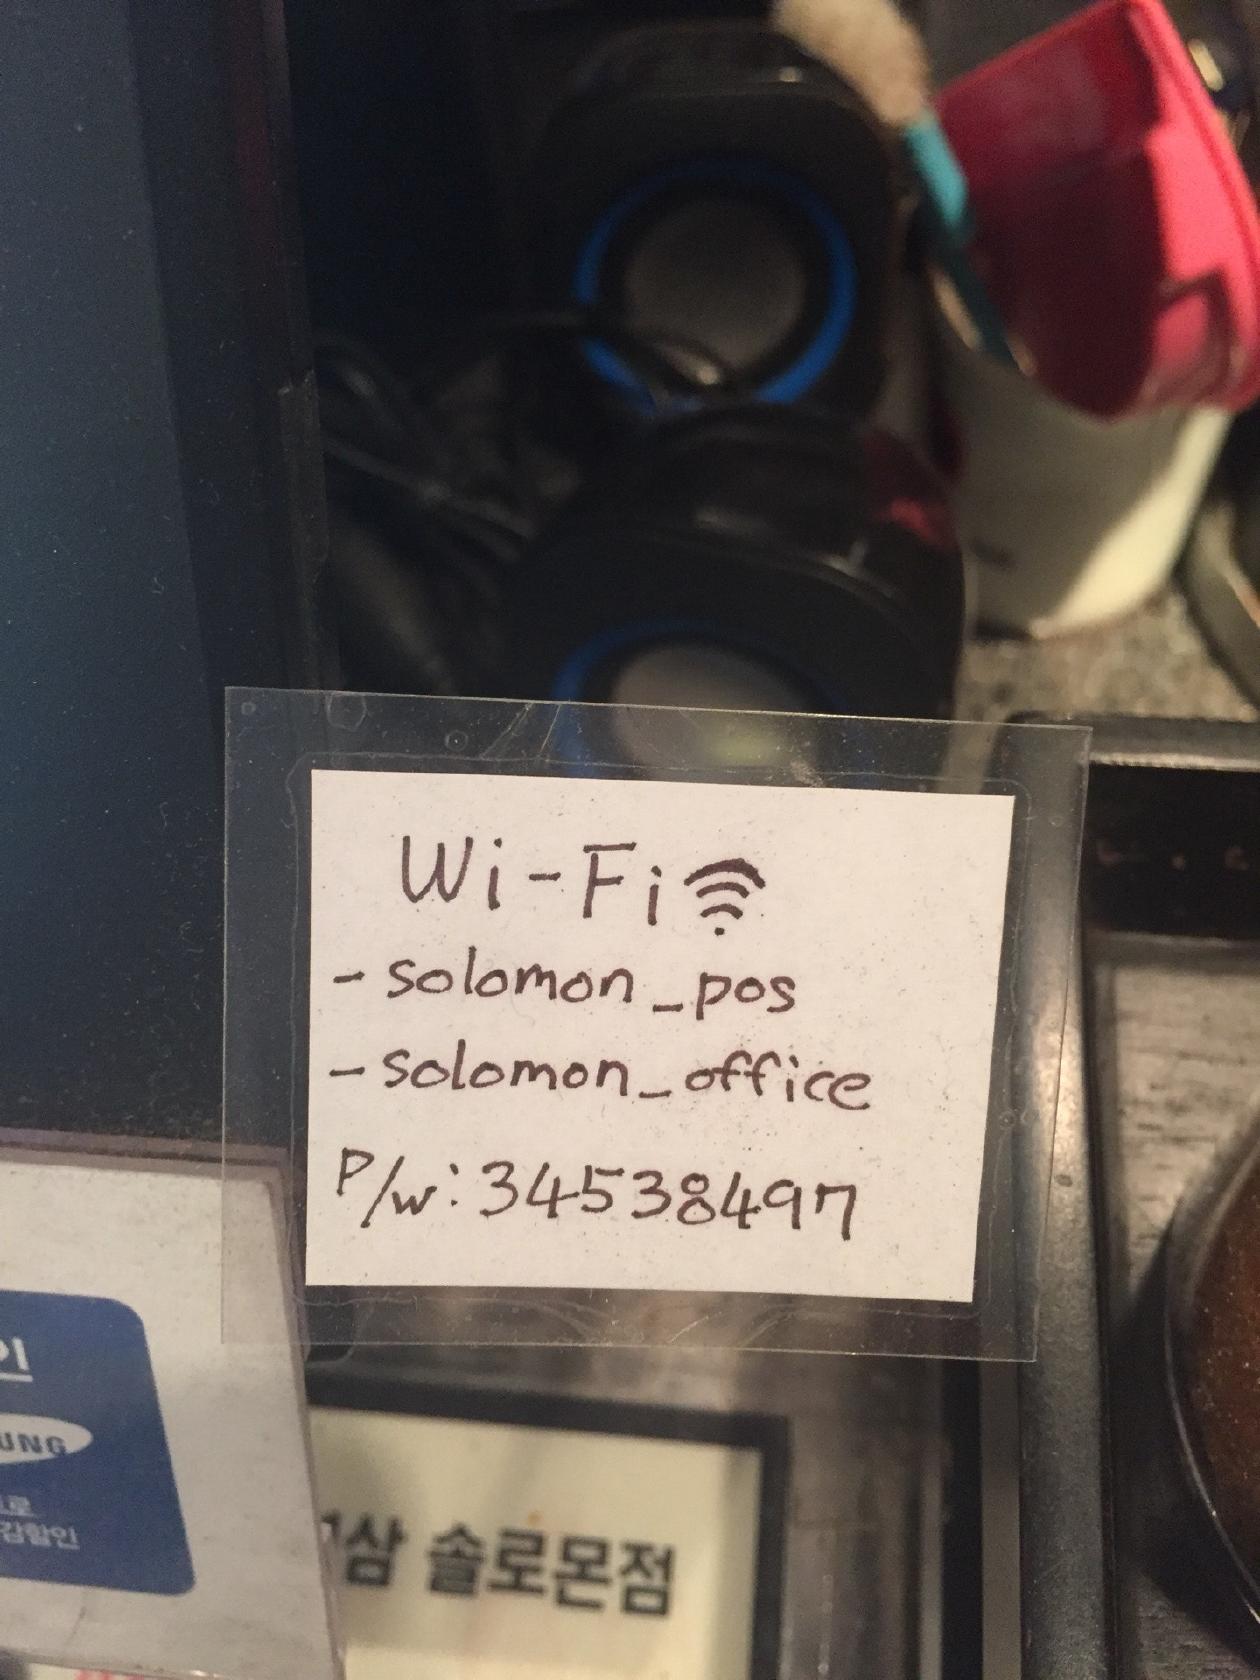 Wi-Fi
- solomon_pos
- solomon_office
P/w: 34538497
UNG
감할인
삼 솔로몬점